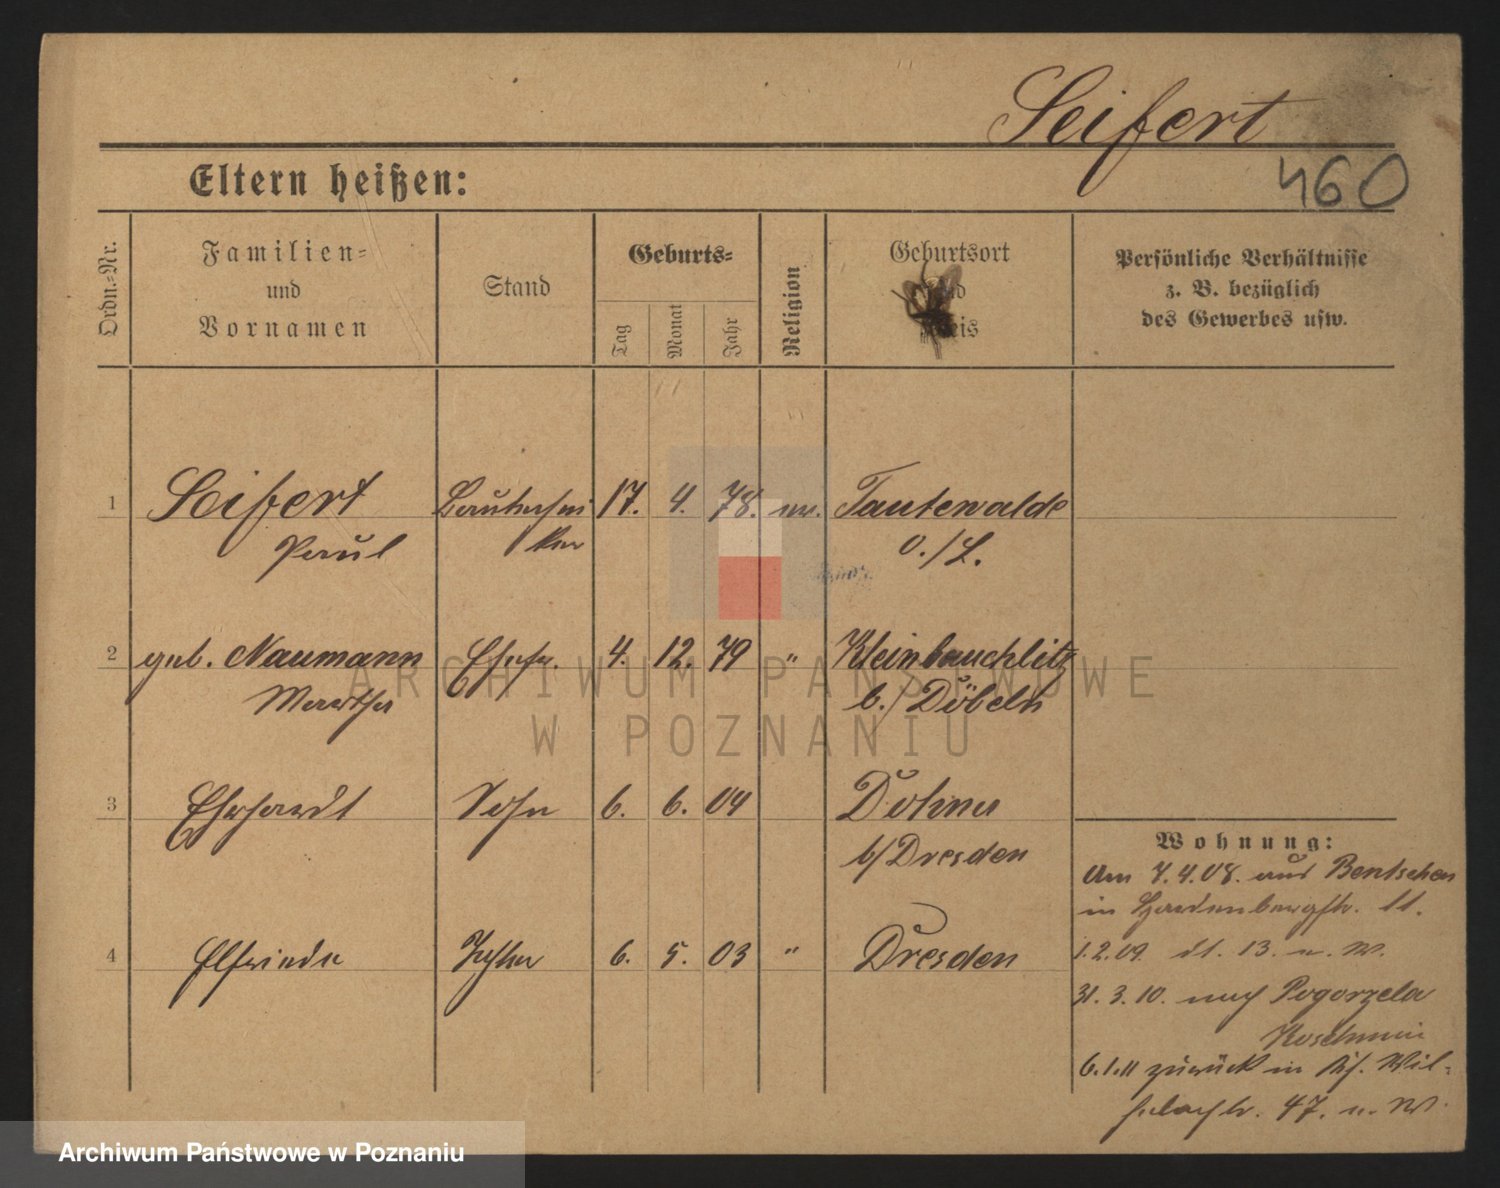 Seifert
460
Eltern heißen:
Ordn.-Nr.
Familien-
und
Vornamen
Stand
Geburts-
Tag
Monat
Jahr
Religion
Geburtsort
Persönliche Verhältnisse
z. B. bezüglich
des Gewerbes usw.
1 Seifert 17. 4. 78. Tautewalde
Paul o./L.
2 geb. Naumann Ehefr. 4. 12. 79 " Kleinbauchlitz
Martha b./Döbeln
3 Ehrhardt Sohn 6. 6. 04 Dohna
b/Dresden
4 Elfriede Tochter 6. 5. 03 " Dresden
Wohnung:
Am 7.4.08. aus Bentschen
in Hardenbergstr. 11.
1.2.09. dt. 13. u. W.
31. 3. 10. nach Pogorzela
Koschmin
6.1.11 zurück in Wil-
helmstr. 47. u. W.
ARCHIWUM PAŃSTWOWE
W POZNANIU
Archiwum Państwowe w Poznaniu